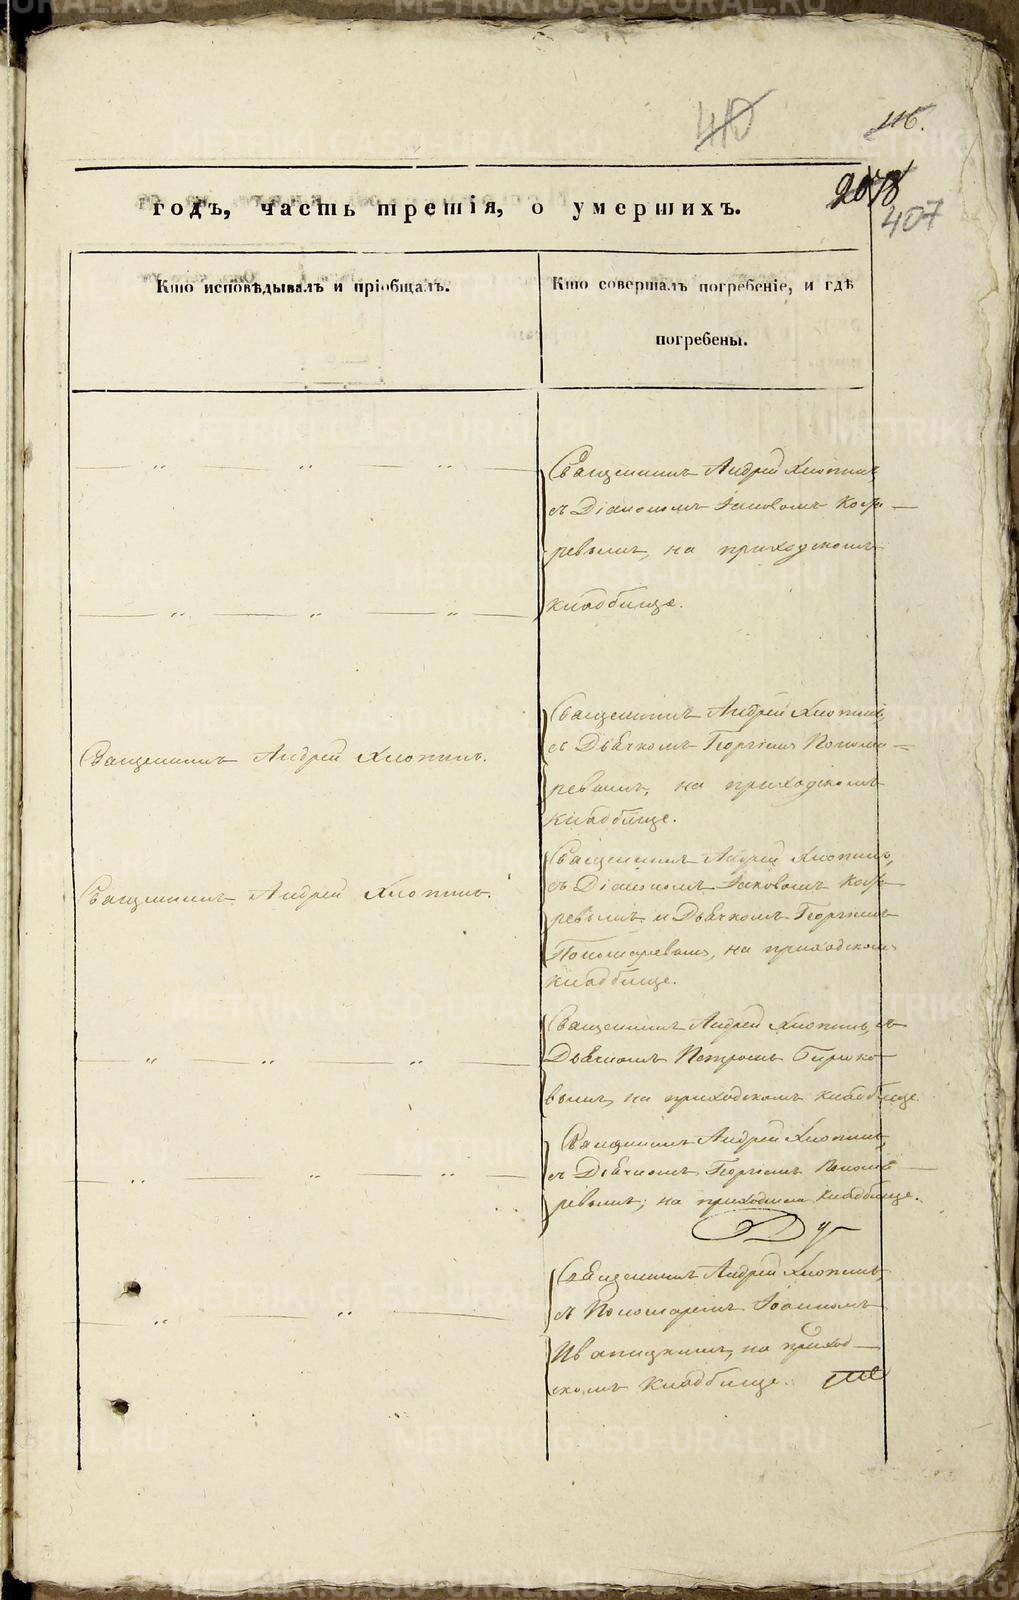 410
116.
407
годъ, часть третія, о умершихъ.
Кто исповѣдывалъ и пріобщалъ.
Кто совершалъ погребеніе, и гдѣ
погребены.
Священникъ Андрей Хлопинъ,
съ Діакономъ Іаковомъ
ревымъ, на приходскомъ
кладбище.
Священникъ Андрей Хлопинъ.
Священникъ Андрей Хлопинъ,
съ Дьячкомъ Георгіемъ Понома-
ревымъ, на приходскомъ
кладбище.
Священникъ Андрей Хлопинъ.
Священникъ Андрей Хлопинъ,
съ Діакономъ Іаковомъ
ревымъ и Дьячкомъ Георгіемъ
Пономаревымъ, на приходскомъ
кладбище.
Священникъ Андрей Хлопинъ, съ
Дьячкомъ Петромъ
вымъ, на приходскомъ кладбище
Священникъ Андрей Хлопинъ,
съ Дьячкомъ Георгіемъ Понома-
ревымъ, на приходскомъ кладбище.
Священникъ Андрей Хлопинъ,
съ Пономаремъ Іоанномъ
на приход-
скомъ кладбище.
METRIKI.GASO-URAL.RU